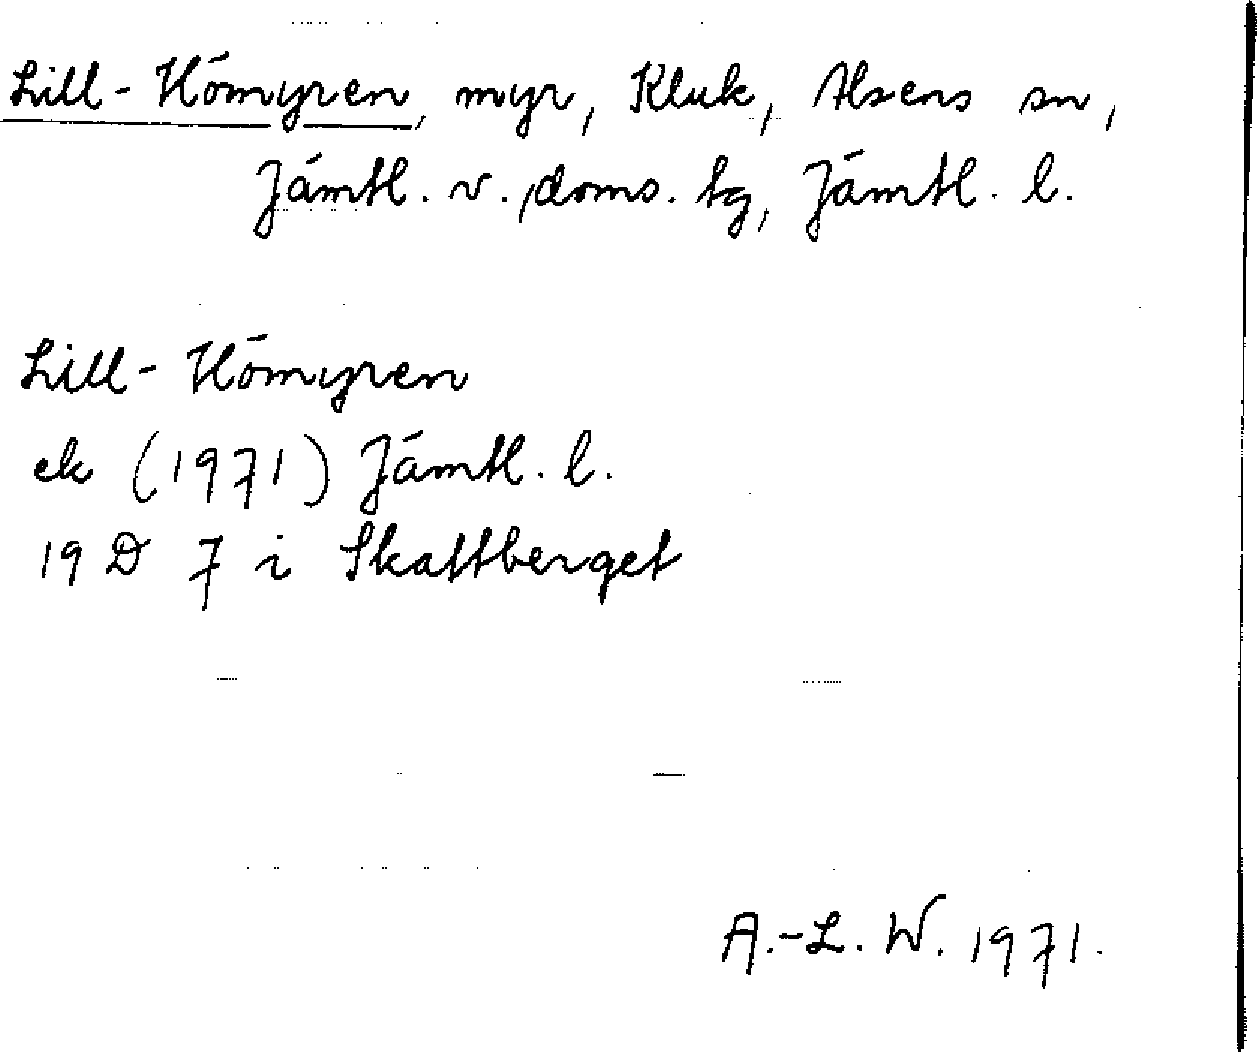 Lill-Hömyren, myr, Kluk, Alsens sn,
Jämtl. v. doms. tg, Jämtl. l.
Lill-Hömyren
ek (1971) Jämtl. l.
19 D 7 i Skattberget
A.-L. W. 1971.